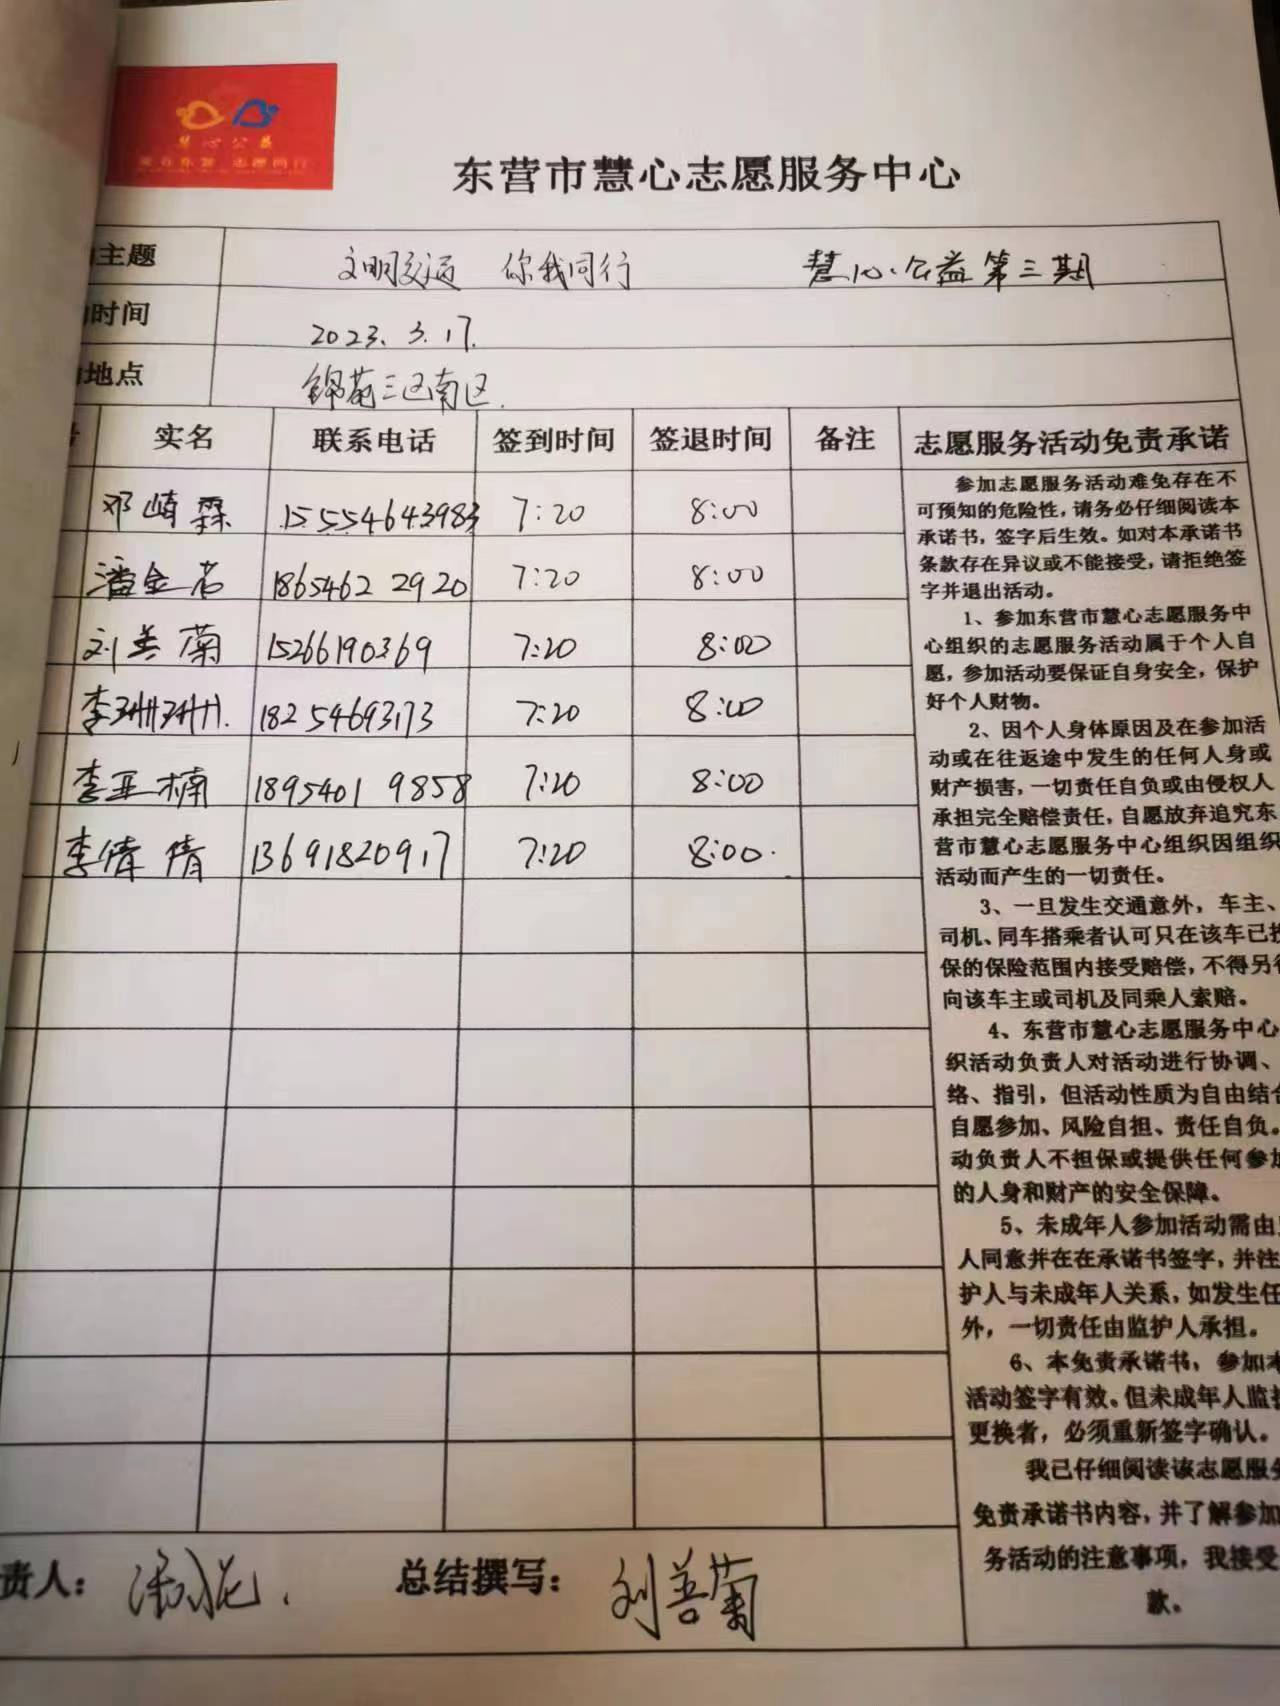 慧心公益
爱在东营 志愿同行
东营市慧心志愿服务中心
主题 文明交通 你我同行 慧心公益第三期
时间 2023.3.17.
地点 锦苑三区南区.
实名 联系电话 签到时间 签退时间 备注 志愿服务活动免责承诺
邓崎霖 15554643983 7:20 8:00
潘金芯 1865462 2920 7:20 8:00
刘善菊 15266190369 7:20 8:00
李珊珊. 18254693173 7:20 8:00
李亚楠 1895401 9858 7:20 8:00
李倩倩 13691820917 7:20 8:00.
参加志愿服务活动难免存在不
可预知的危险性，请务必仔细阅读本
承诺书，签字后生效。如对本承诺书
条款存在异议或不能接受，请拒绝签
字并退出活动。
1、参加东营市慧心志愿服务中
心组织的志愿服务活动属于个人自
愿，参加活动要保证自身安全，保护
好个人财物。
2、因个人身体原因及在参加活
动或在往返途中发生的任何人身或
财产损害，一切责任自负或由侵权人
承担完全赔偿责任，自愿放弃追究东
营市慧心志愿服务中心组织因组织
活动而产生的一切责任。
3、一旦发生交通意外，车主、
司机、同车搭乘者认可只在该车已投
保的保险范围内接受赔偿，不得另行
向该车主或司机及同乘人索赔。
4、东营市慧心志愿服务中心
织活动负责人对活动进行协调、
络、指引，但活动性质为自由结合
自愿参加、风险自担、责任自负。
动负责人不担保或提供任何参加
的人身和财产的安全保障。
5、未成年人参加活动需由
人同意并在在承诺书签字，并注
护人与未成年人关系，如发生任
外，一切责任由监护人承担。
6、本免责承诺书，参加本
活动签字有效。但未成年人监护
更换者，必须重新签字确认。
我已仔细阅读该志愿服务
免责承诺书内容，并了解参加
务活动的注意事项，我接受
款。
责人： 总结撰写：刘善菊